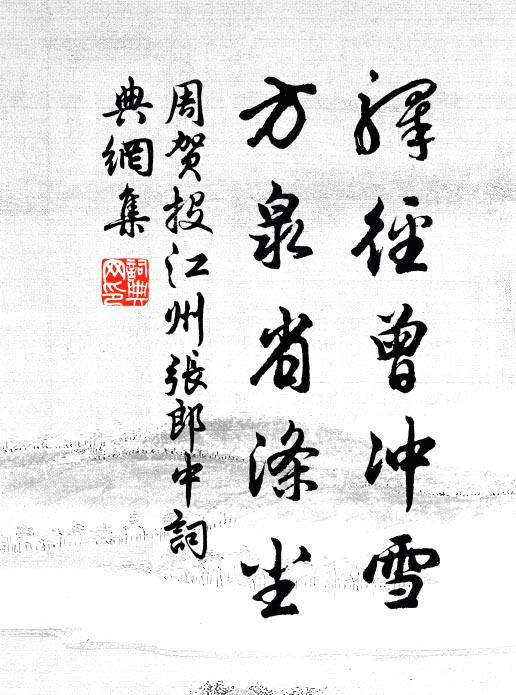 驛徑曾冲雪
方泉省滌尘
周賀投江州張郎中詞
典網集
詞典网印